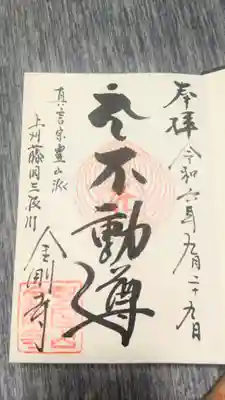 奉拝 令和六年九月二十九日
不動尊
真言宗豊山派
上州藤岡三波川
金剛寺